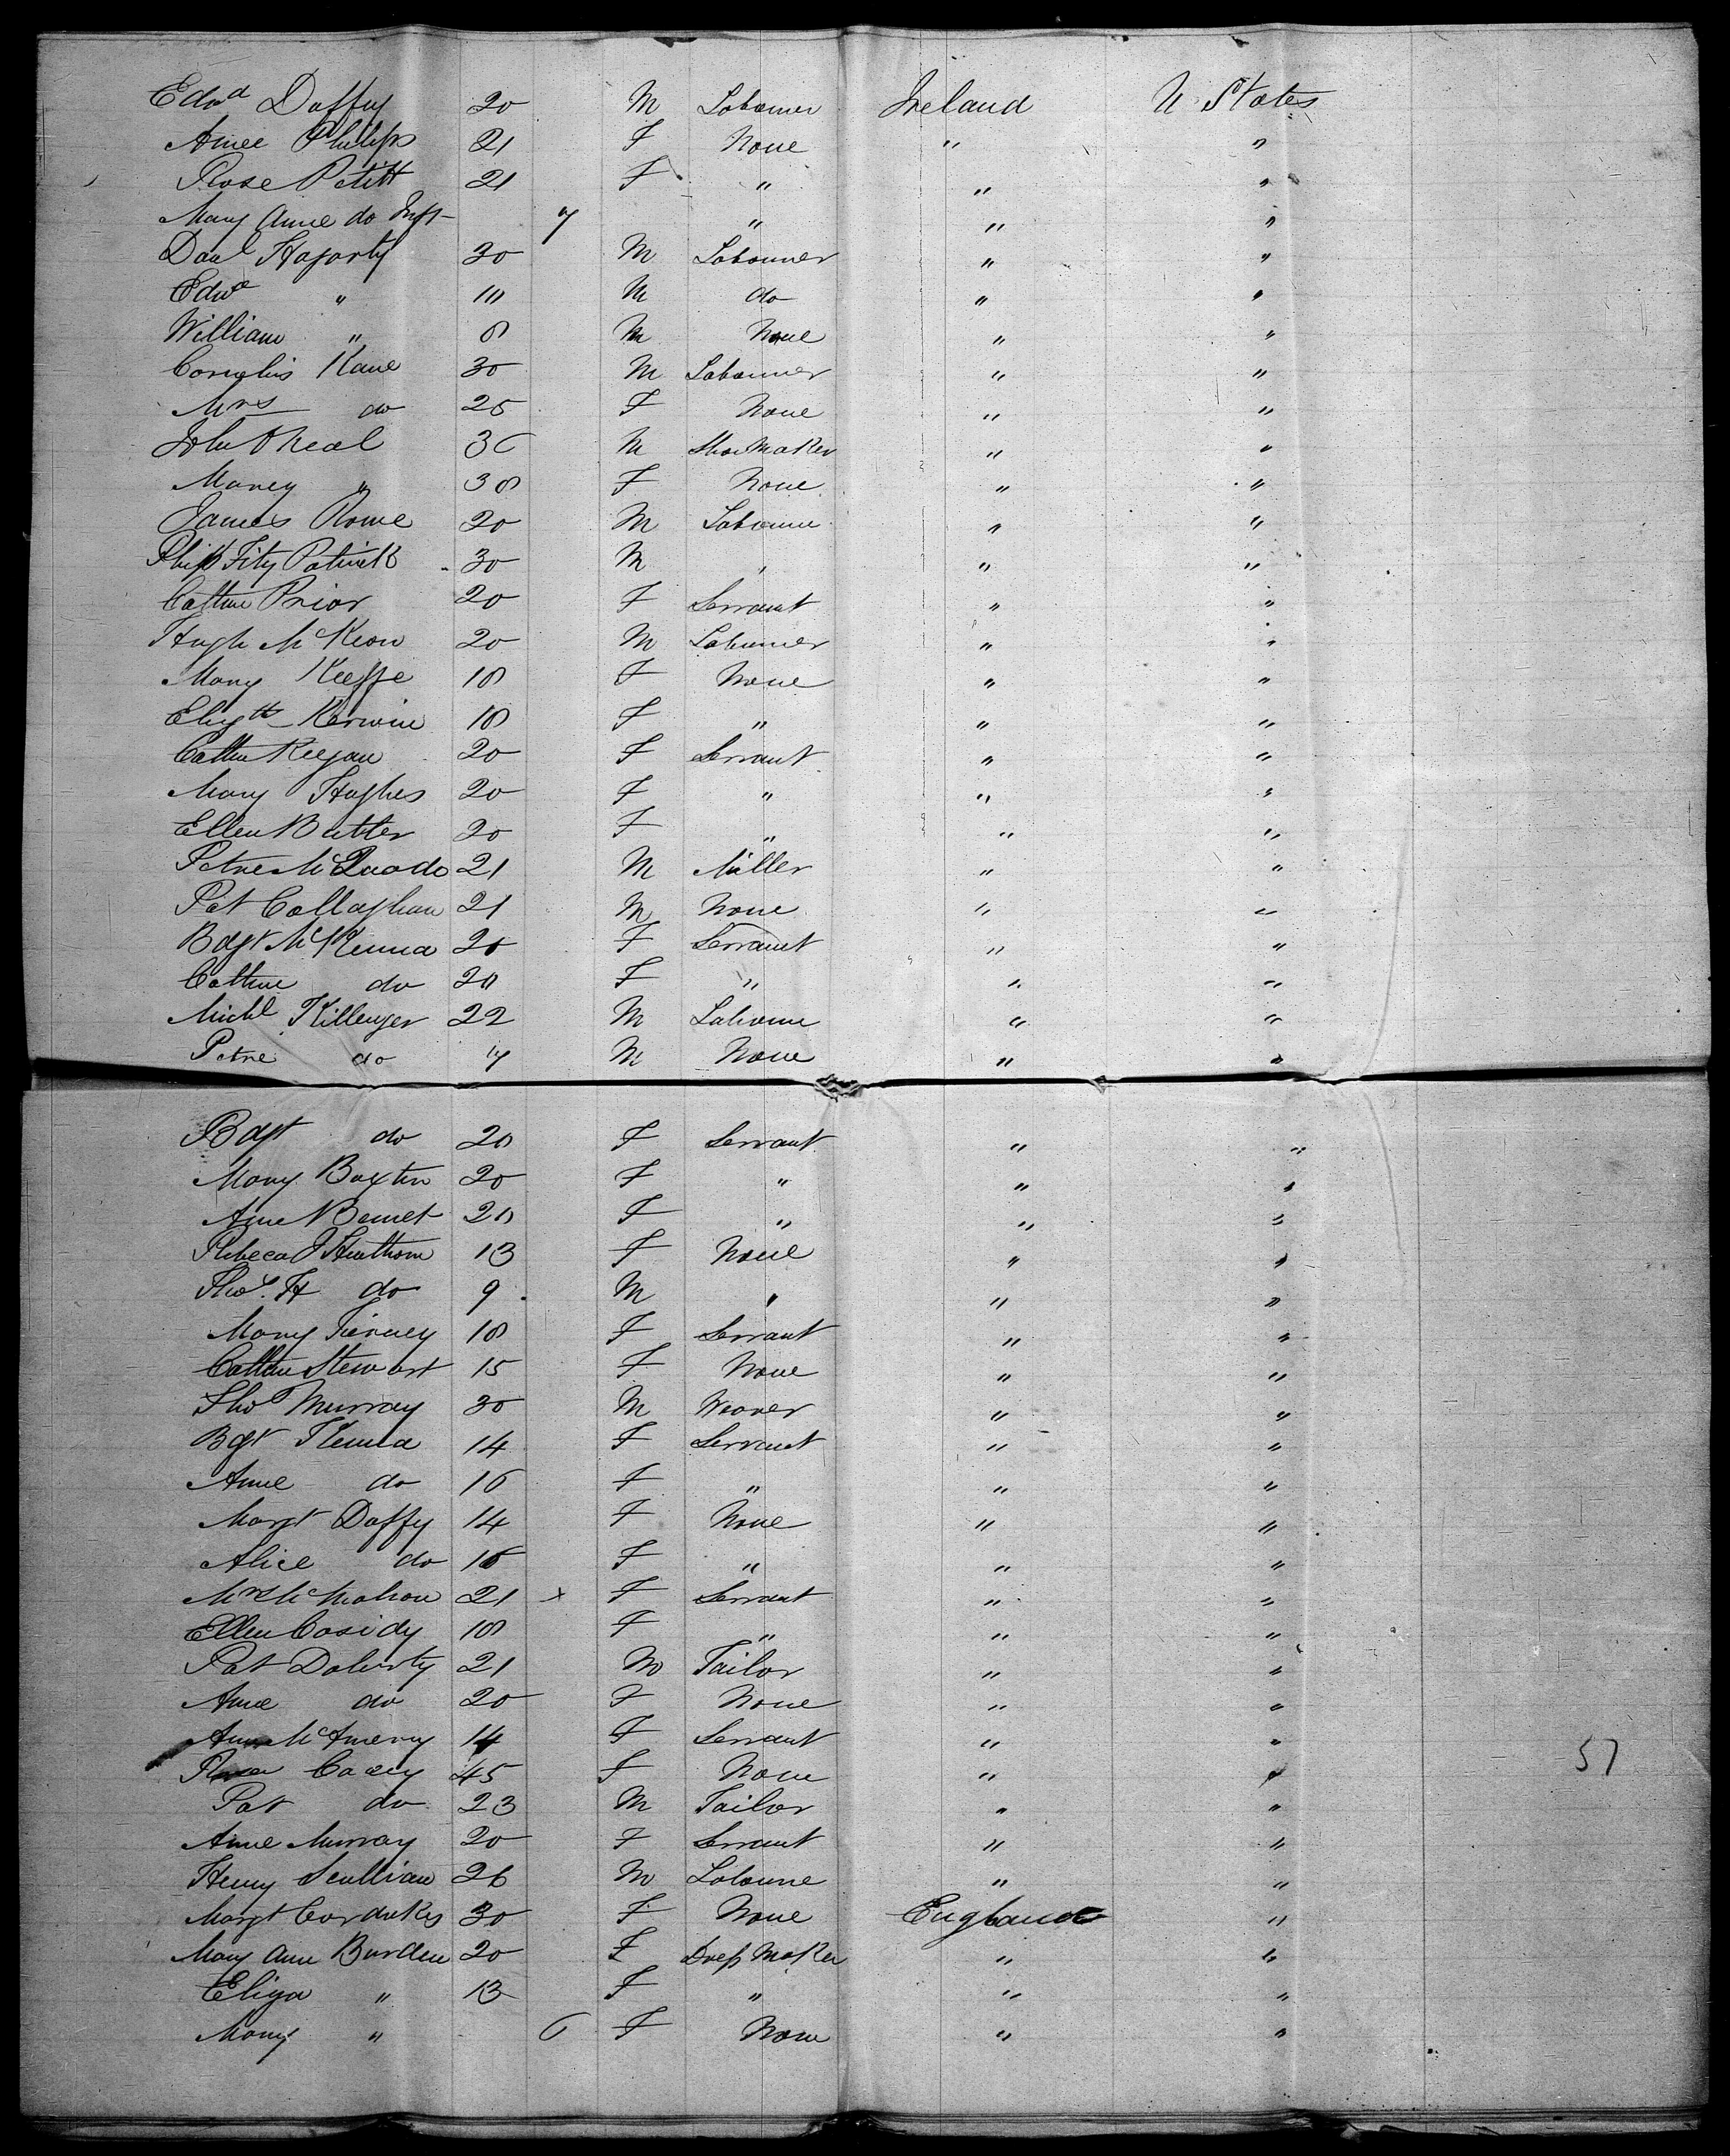 Edwd Duffy 20 M Labourer Ireland U States
Anne Philips 21 F None " "
Rose Petitt 21 F " " "
Mary Anne do Inft 7 " " "
Danl Hagarty 30 M Labourer " "
Edwd " 10 M do " "
William " 8 M None " "
Cornelius Kane 30 M Labourer " "
Mrs do 25 F None " "
John O Neal 36 M Shoe Maker " "
Marey " 38 F None " "
James Rowe 20 M Labourer " "
Philp Fitz Patrick 30 M " " "
Cathne Prior 20 F Servant " "
Hugh McKeon 20 M Labourer " "
Mary Keeffe 18 F None " "
Elizth Kerwine 18 F " " "
Cathne Keegan 20 F Servant " "
Mary Hughes 20 F " " "
Ellen Butler 20 F " " "
Petre McQuado 21 M Miller " "
Pat Callaghan 21 M None " "
Bdgt McKenna 20 F Servant " "
Cathne do 20 F " " "
Michl Killenger 22 M Labourer " "
Petre do 7 M None " "
Bdgt do 20 F Servant " "
Mary Baxter 20 F " " "
Anne Bennet 20 F " " "
Rebeca J 13 F None " "
Thos. H do 9 M " " "
Mary Tierney 18 F Servant " "
Cathne Stewart 15 F None " "
Thos Murray 30 M Weaver " "
Bgt Kenna 14 F Servant " "
Anne do 16 F " " "
Margt Duffy 14 F None " "
Alice do 16 F " " "
Mrs McMahon 21 x F Servant " "
Ellen Casidy 18 F " " "
Pat Doherty 21 M Tailor " "
Anne do 20 F None " "
Ann 14 F Servant " "
Casey 45 F None " " 57
Pat do 23 M Tailor " "
Anne Murray 20 F Servant " "
Henry Scullian 26 M Laboure " "
Margt Cordukes 30 F None England "
Mary Ann Burden 20 F Dress Maker " "
Eliza " 13 F " " "
Mary " 6 F None " "